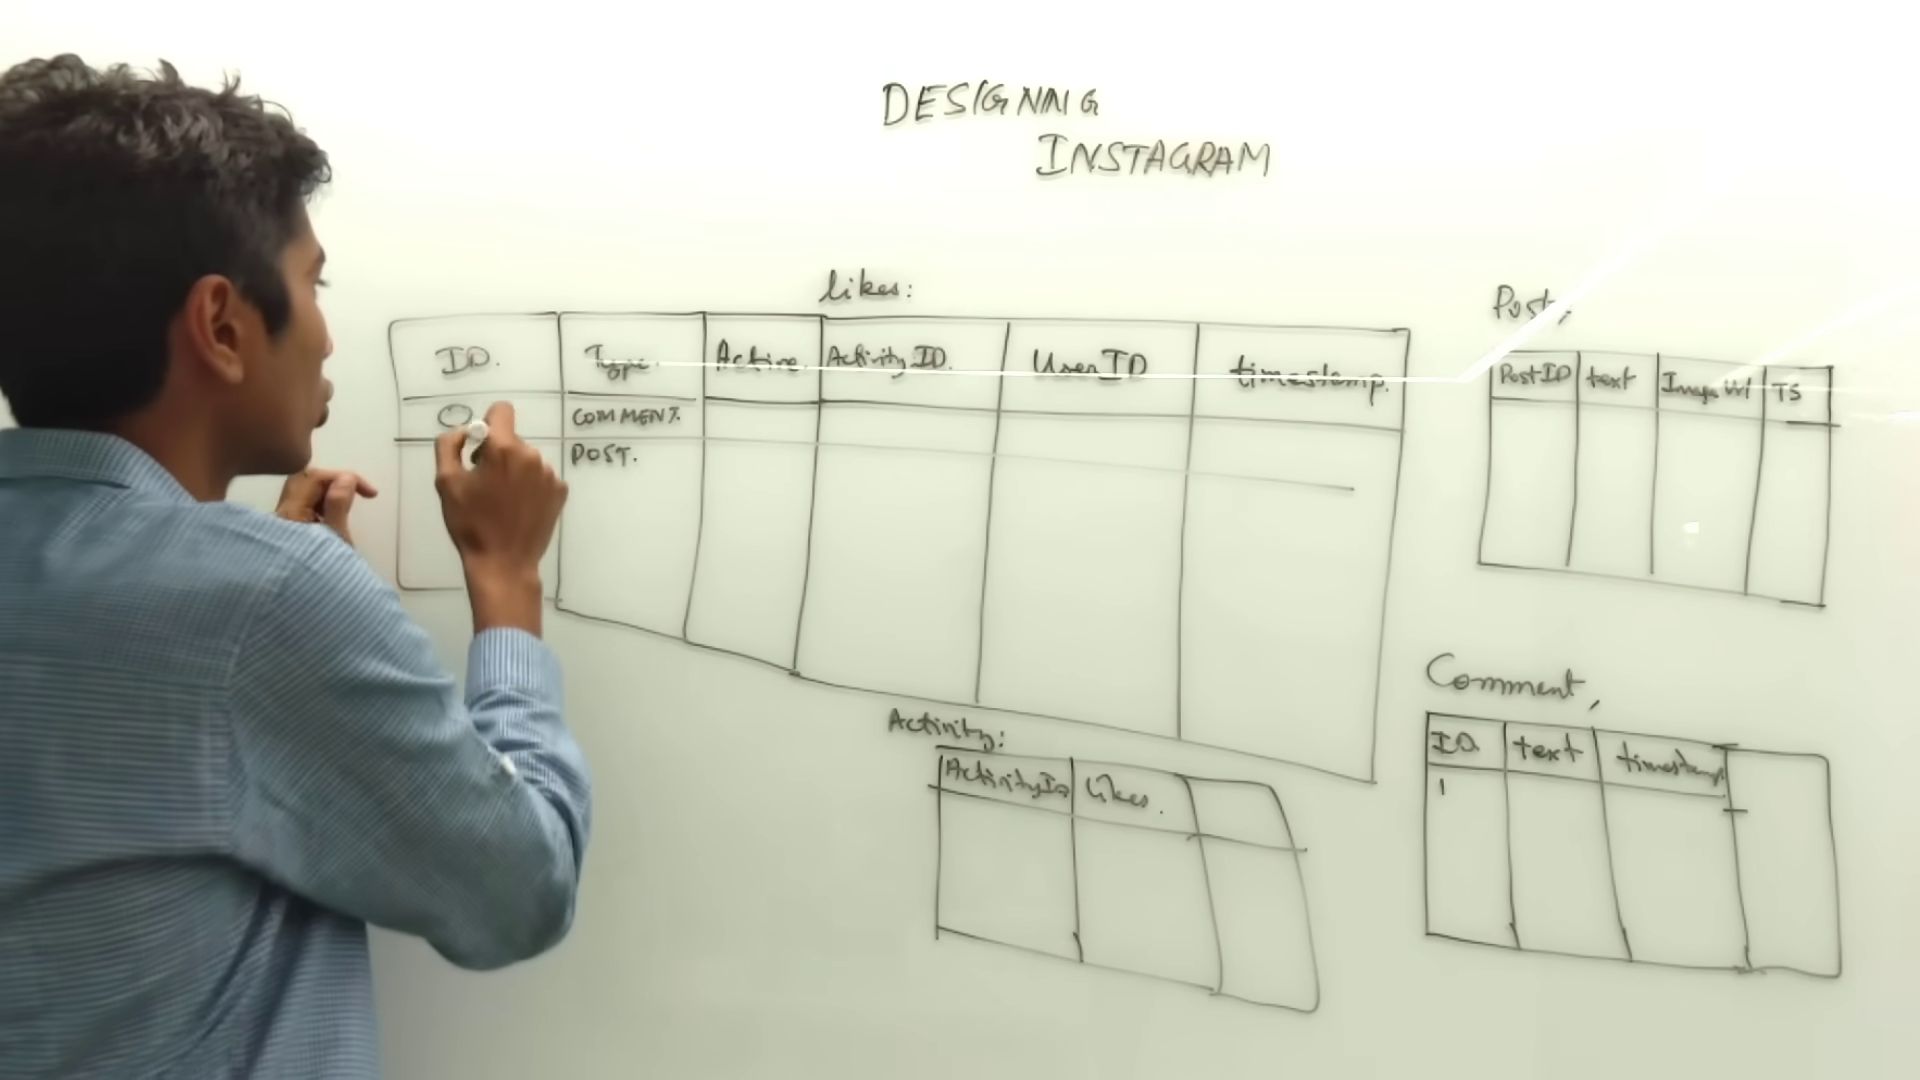 DESIGNING
INSTAGRAM
likes:
ID. Type. Active. Activity ID. UserID timestamp.
0 COMMENT.
POST.
Post,
PostID text ImageUrl TS
Activity:
ActivityID likes.
Comment,
ID text timestamp
1